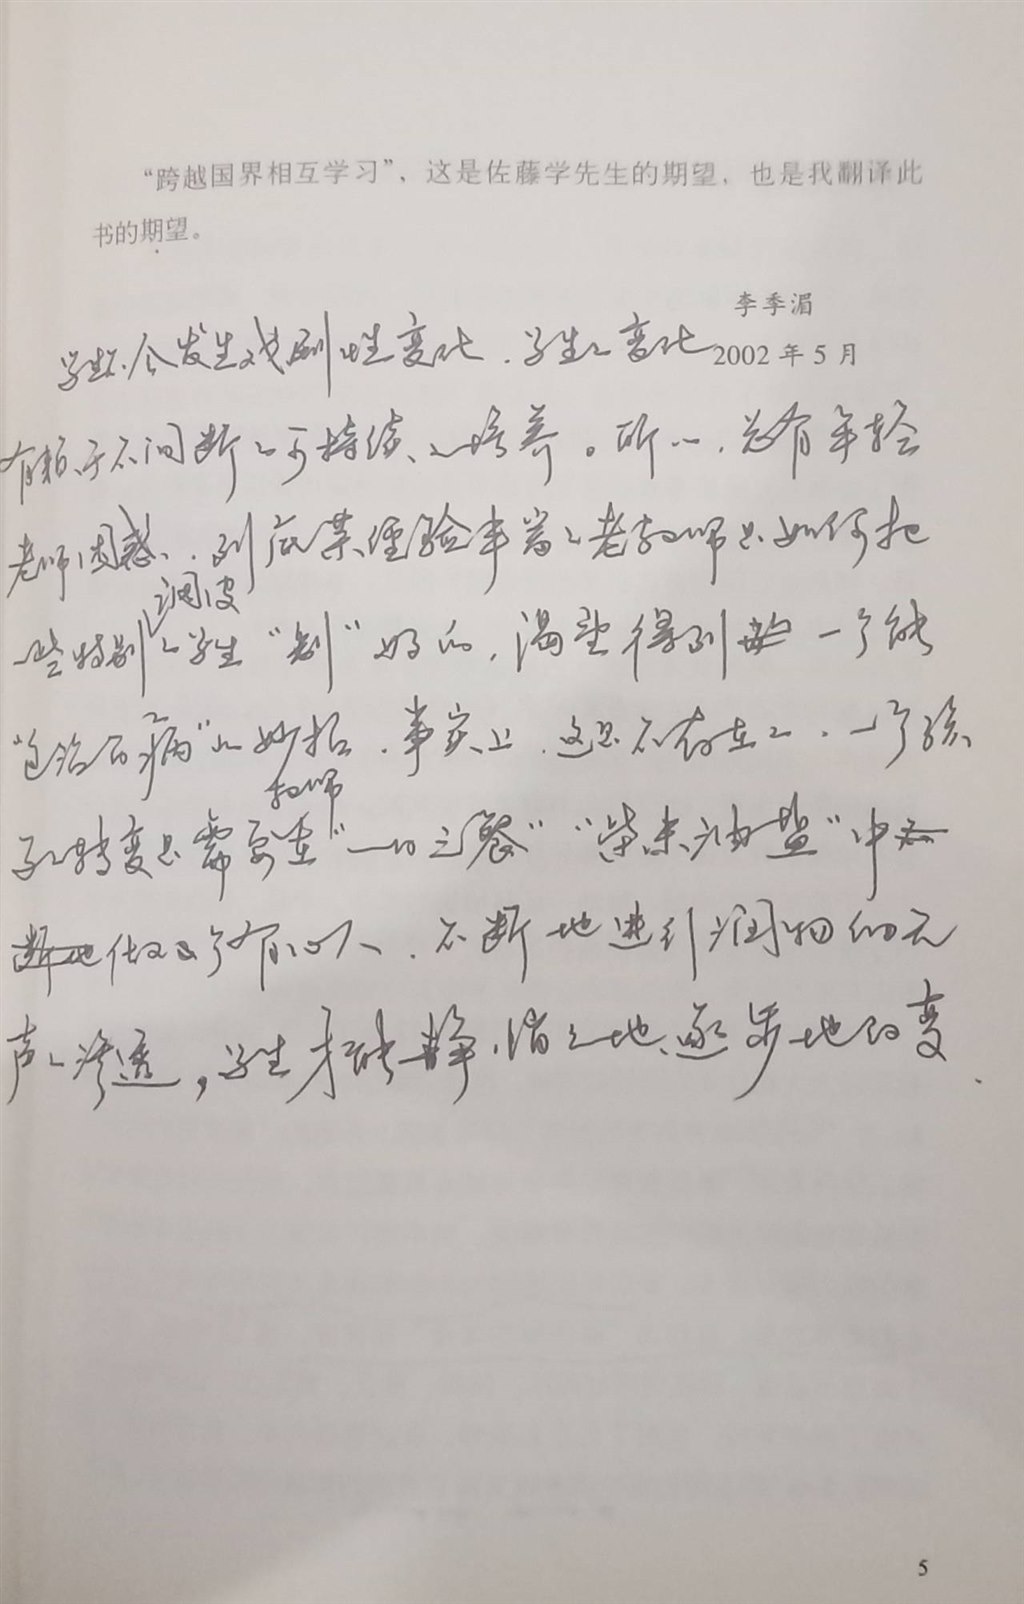 “跨越国界相互学习”，这是佐藤学先生的期望，也是我翻译此
书的期望。
李季湄
2002 年 5 月
学生不会发生戏剧性变化，学生的变化
有赖于不间断的可持续的培养。所以，总有年轻
老师困惑，到底某经验丰富的老教师是如何把
调皮
一些特别的学生“制”好的，渴望得到一个能
“包治百病”的妙招，事实上，这是不存在的，一个孩
教师
子的转变是需要在“一日三餐”“柴米油盐”中
做个有心人，不断地进行润物细无
声的渗透，学生才能静悄悄地、逐步地改变
5